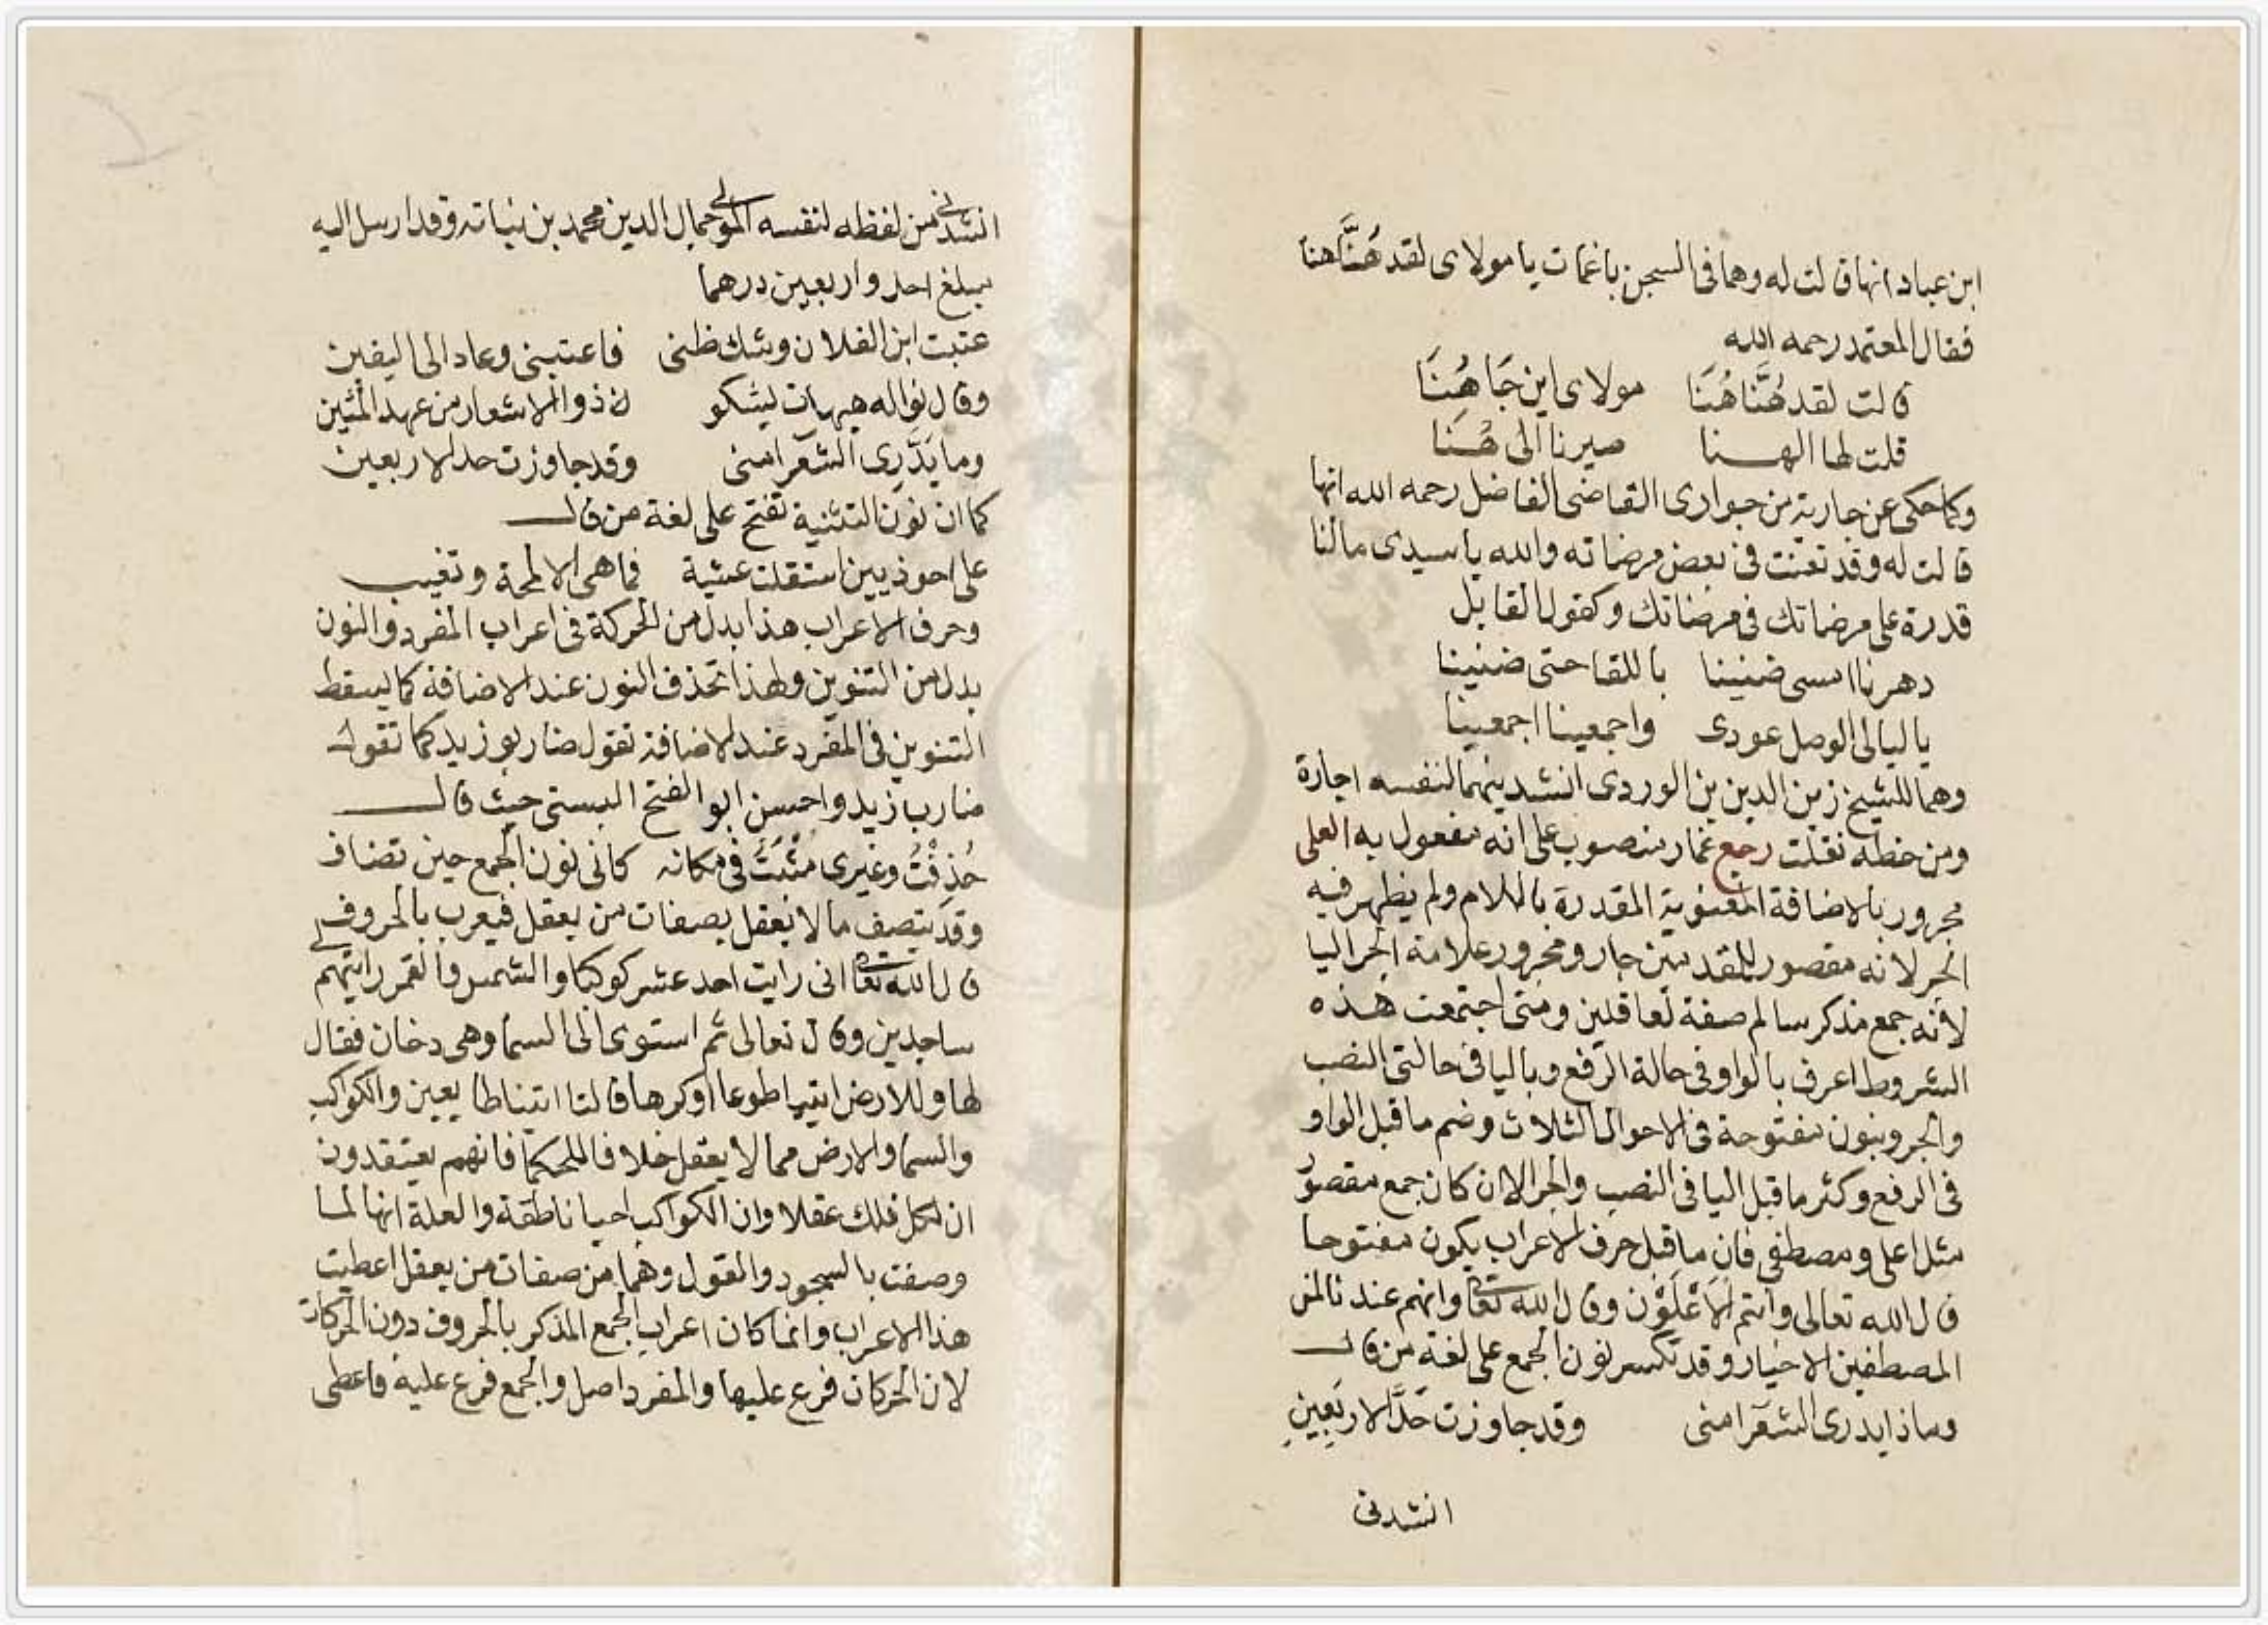 ابن عباد انها قالت له وهما فى السجن باغمات يا مولاى لقد هُنَّا هنا
فقال المعتمد رحمه الله
قالت لقد هُنَّا هُنَا مولاى اين جَاهُنَا
قلت لها الهنا صيرنا الى هُنَا
وكما حكى عن جارية من جوارى القاضى الفاضل رحمه الله انها
قالت له وقد تعنت فى بعض مرضاته والله يا سيدى مالنا
قدرة على مرضاتك فى مرضاتك وكقول القايل
دهرنا امسى ضنينا باللقا حتى ضنينا
يا ليالى الوصل عودى واجمعينا اجمعينا
وهما للشيخ زين الدين بن الوردى انشدينهما لنفسه اجازة
ومن خطه نقلت رجع غمار منصوب على انه مفعول به العلى
مجرور بالاضافة المعنوية المقدرة باللام ولم يظهر فيه
الجر لانه مقصور للقد مين جار ومجرور علامة الجر اليا
لانه جمع مذكر سالم صفة لعاقلين ومتى اجتمعت هذه
الشروط اعرف بالواو فى حالة الرفع وباليا فى حالتى النصب
والجر وبنون مفتوحة فى الاحوال الثلاث وضم ما قبل الواو
فى الرفع وكثر ما قبل اليا فى النصب والجر الا ان كان جمع مقصور
مثل اعلى ومصطفى فان ما قبل حرف الاعراب يكون مفتوحا
قال الله تعالى وانتم الاَعْلَوْن وقال الله تعا وانهم عندنا لمن
المصطفين الاخيار وقد تكسر نون الجمع على لغة من قال
وماذا يدرى الشعرا منى وقد جاوزت حَدَّ الاربَعِينِ
انشدنى
انشدنى من لفظه لنفسه المولى جمال الدين محمد بن نباته وقد ارسل اليه
مبلغ احد واربعين درهما
عتبت ابن الفلان وشك ظنى فاعتبنى وعاد الى اليقين
وقال نواله هيهات ليشكو لذ ذو الاشعار من عهد المئين
وما يَدَّرِى الشعرا منى وقد جاوزت حد الاربعين
كما ان نون التثنية تفتح على لغة من قال
على احوذيين استقلت عشية فما هى الا لمحة وتغيب
وحرف الاعراب هذا بدل من الحركة فى اعراب المفرد والنون
بدل من التنوين ولهذا تحذف النون عند الاضافة كما يسقط
التنوين فى المفرد عند الاضافة تقول ضاربو زيد كما تقول
ضارب زيد واحسن ابو الفتح البستى حيث قال
حُذِفْتُ وغيرى مُثْبَتٌ فى مكانه كانى نون الجمع حين تضاف
وقد يتصف ما لا يعقل بصفات من يعقل فيعرب بالحروف
قال الله تعالى انى رايت احد عشر كوكبا والشمس والقمر رايتهم لى
ساجدين وقال تعالى ثم استوى الى السما وهى دخان فقال
لها وللارض ايتيا طوعا او كرها قالتا اتينا طايعين والكواكب
والسما والارض مما لا يعقل خلافا للحكما فانهم يعتقدون
ان لكل فلك عقلا وان الكواكب احيا ناطقة والعلة انها لما
وصفت بالسجود والقول وهما من صفات من يعقل اعطيت
هذا الاعراب وانما كان اعراب الجمع المذكر بالحروف دون الحركات
لان الحركات فرع عليها والمفرد اصل والجمع فرع عليه فاعطى